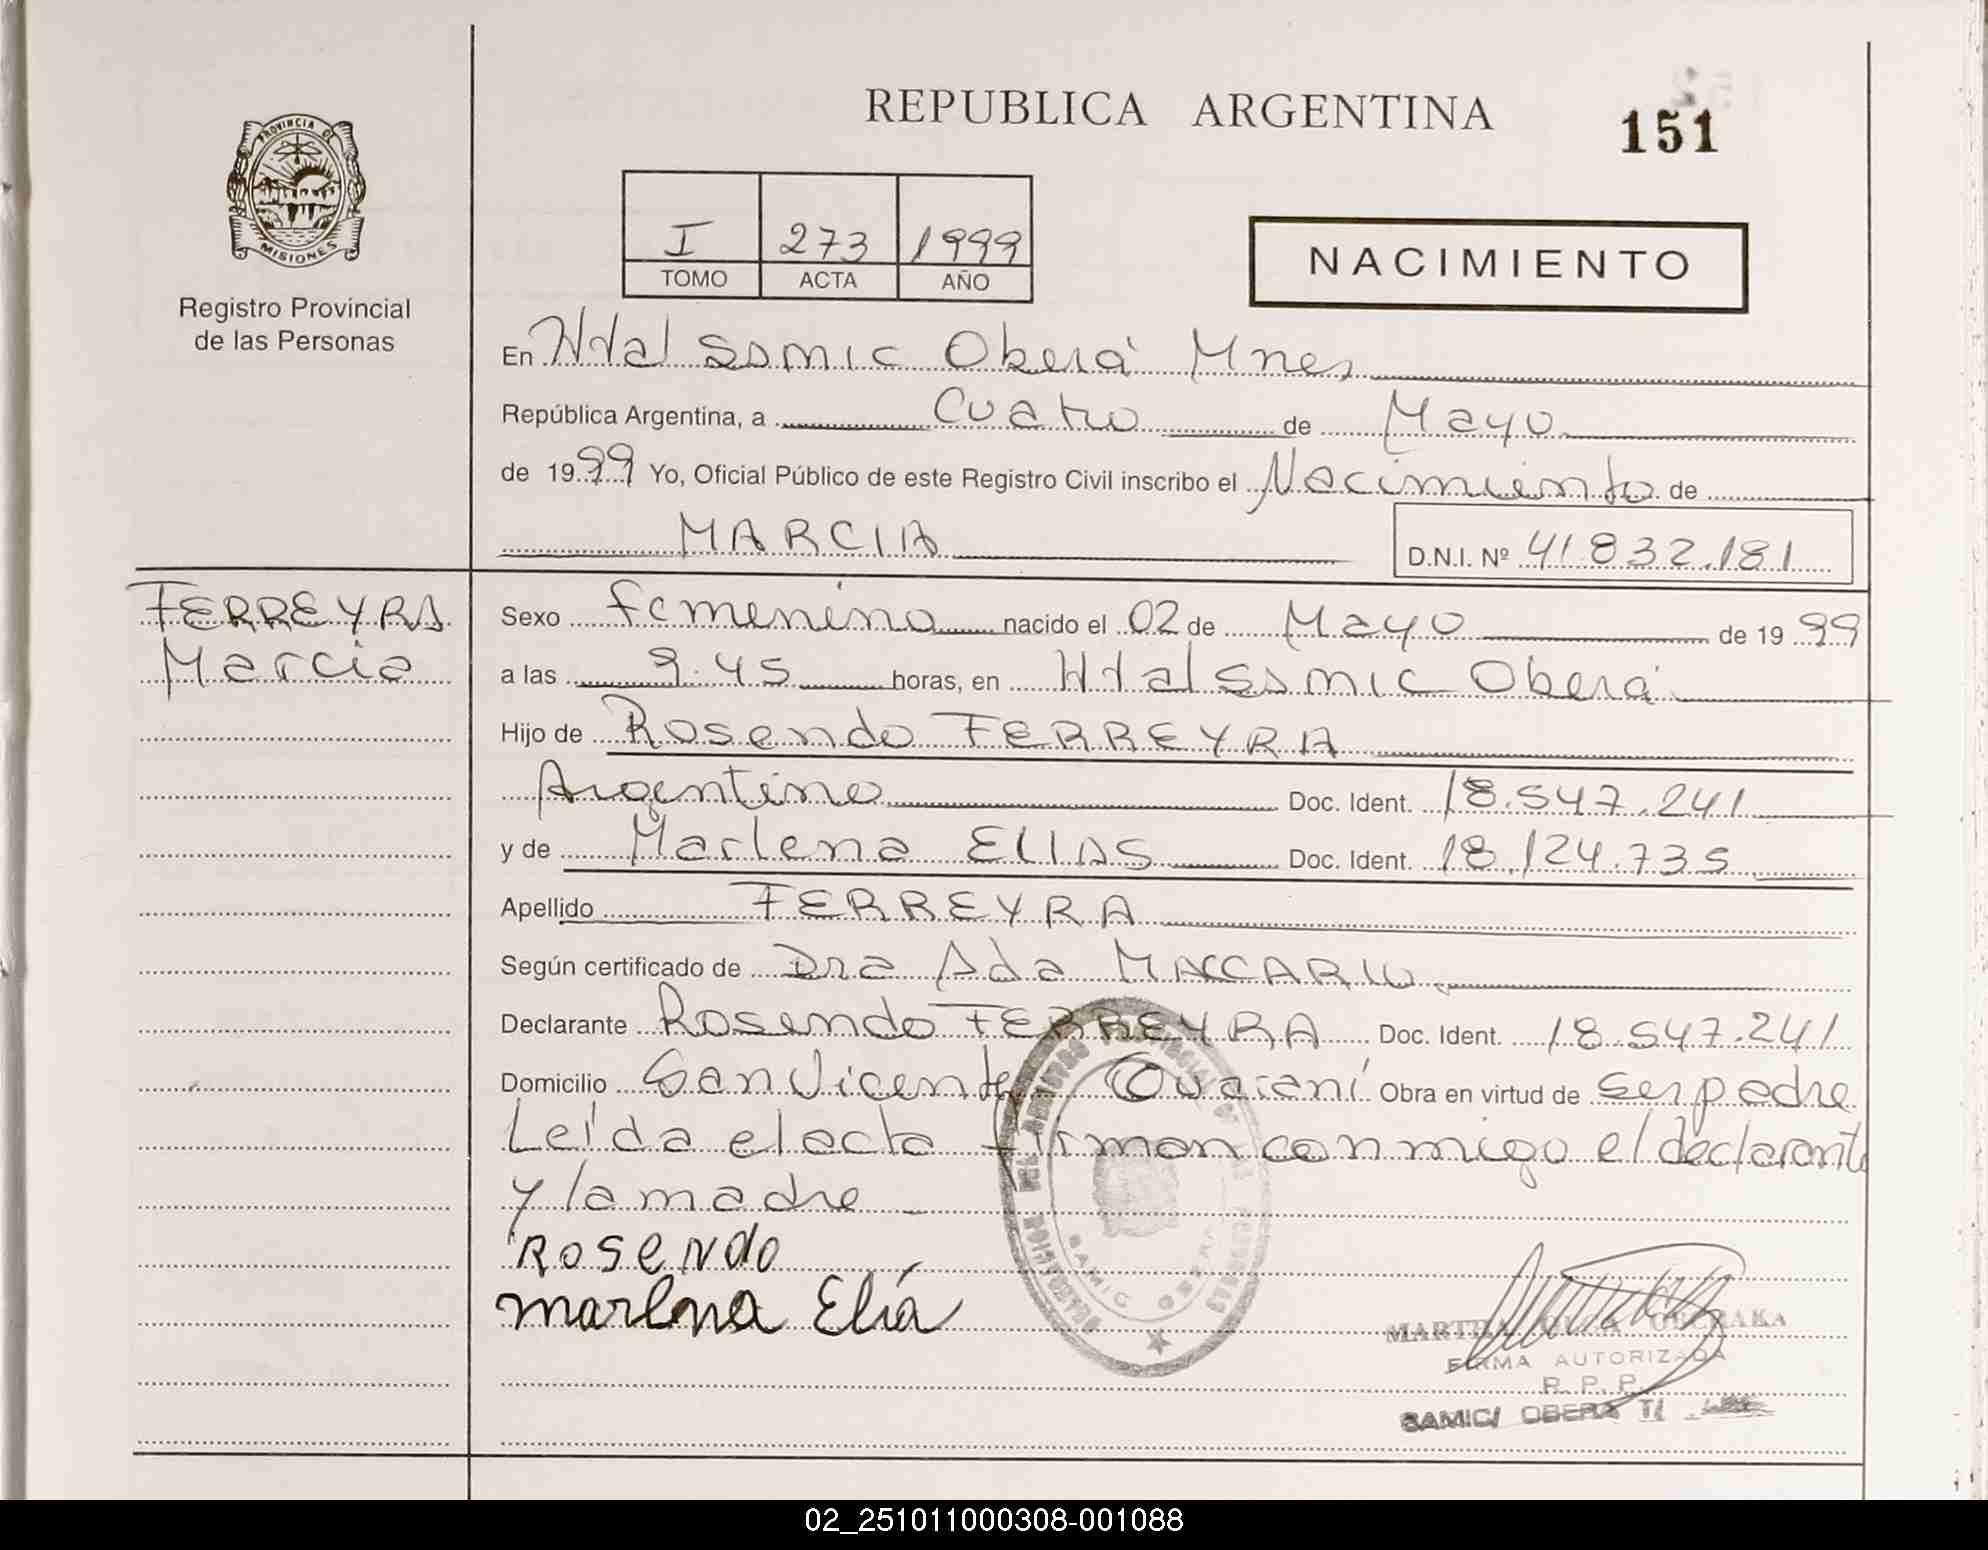 REPUBLICA ARGENTINA
151
PROVINCIA DE
MISIONES
Registro Provincial
de las Personas
I 273 1999
TOMO ACTA AÑO
NACIMIENTO
En Htal SSMIC Oberá Mnes
República Argentina, a Cuatro de Mayo
de 1999 Yo, Oficial Público de este Registro Civil inscribo el Nacimiento de
MARCIA D.N.I. Nº 41.832.181
FERREYRA
Marcia
Sexo femenino nacido el 02 de Mayo de 1999
a las 9.45 horas, en Htal SSMIC Oberá
Hijo de Rosendo FERREYRA
Argentino Doc. Ident. 18.547.241
y de Marlena ELIAS Doc. Ident. 18.124.735
Apellido FERREYRA
Según certificado de Dra Ada MACCARIO
Declarante Rosendo FERREYRA Doc. Ident. 18.547.241
Domicilio San Vicente Guaraní Obra en virtud de ser padre
Leída el acta firman conmigo el declarante
y la madre
Rosendo
marlena Elía
SAMIC OBERA
MARTHA
FIRMA AUTORIZADA
R. P. P.
SAMIC/ OBERA
02_251011000308-001088